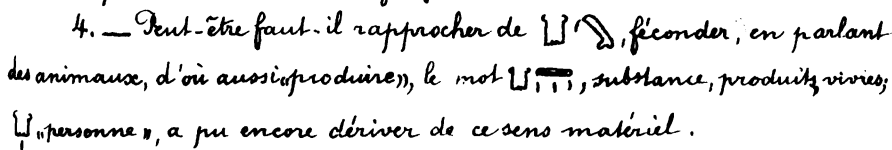 4. — Peut-être faut-il rapprocher de 𓂓𓂺, féconder, en parlant
des animaux, d'où aussi «produire», le mot 𓂓, substance, produits, vivres;
𓂓 «personne», a pu encore dériver de ce sens matériel.